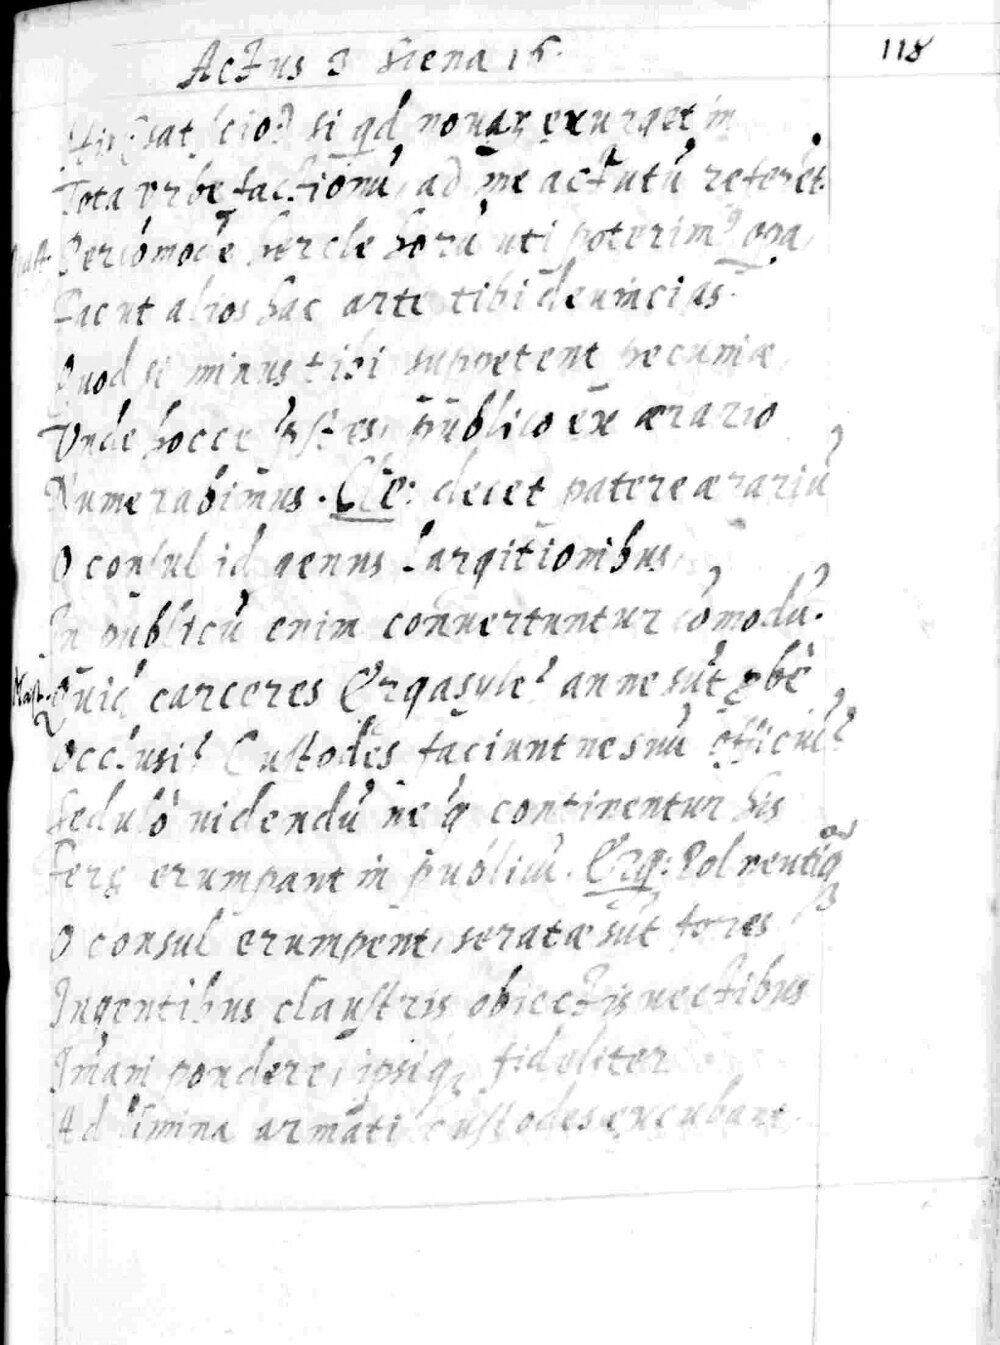 Actus 3 Scena 15. 118
sat scio? si qd nouar exurget in
Tota vrbe factionū, ad me actutū referēt.
Percōmodē hercle horū uti poterimꝰ opa,
Fac ut alios hac arte tibi deuincias.
Quod si minus tibi suppetent pecuniæ,
Vnde hocce pstes, publico ex ærario
Numerabimus. Cle: decet patere ærariū
O consul id genus largitionibus,
In publicū enim conuertuntur cōmodū.
Mast. Quid carceres Ergasyle? an ne sūt probè
Occlusi? Custodes faciunt ne suū officiū?
Sedulò uidendū ne q continentur his
Feræ erumpant in publicū. Erg: Pol neutiq̄
O consul erumpent, seratæ sūt fores
Ingentibus claustris obiectis uectibus
Imāni pondere, ipsiqꝫ fideliter
Ad limina armati custodes excubant.